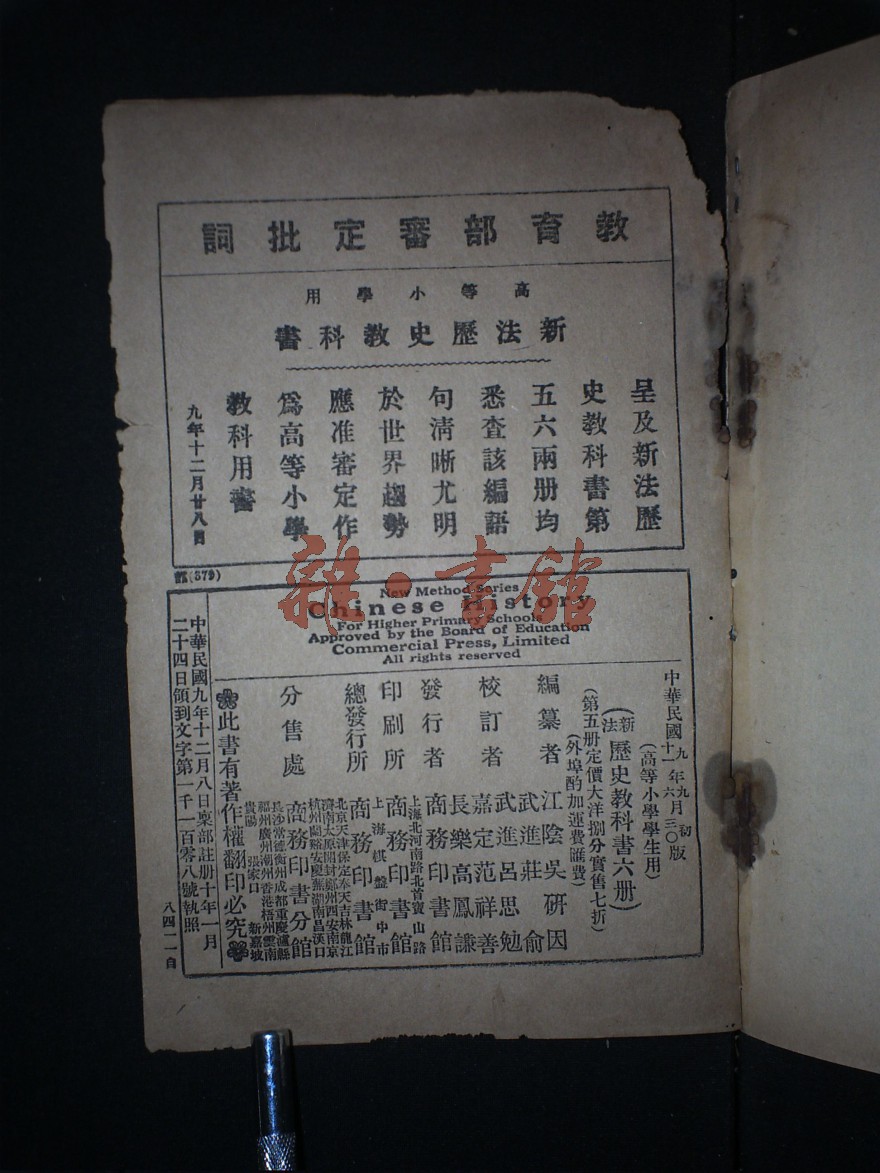 教育部審定批詞
高等小學用
新法歷史教科書
呈及新法歷
史教科書第
五六兩册均
悉查該編語
句清晰尤明
於世界趨勢
應准審定作
爲高等小學
教科用書
九年十二月廿八日
(379)
New Method Series
Chinese History
For Higher Primary Schools
Approved by the Board of Education
Commercial Press, Limited
All rights reserved
中華民國九年九月初版
十一年六月三〇版
(高等小學學生用)
(新法)歷史教科書六册)
(第五册定價大洋捌分實售七折)
(外埠酌加運費匯費)
編纂者 江陰吳研因
武進莊俞
武進呂思勉
校訂者 嘉定范祥善
長樂高鳳謙
發行者 商務印書館
印刷所 上海北河南路北首寶山路
商務印書館
總發行所 上海棋盤街中市
商務印書館
分售處 北京天津保定奉天吉林龍江
濟南太原開封鄭州西安南京
杭州蘭谿安慶蕪湖南昌漢口
商務印書分館
長沙常德衡州成都重慶瀘縣
福州廣州潮州香港梧州雲南
貴陽 張家口 新嘉坡
此書有著作權翻印必究
中華民國九年十二月八日稟部註册十年一月
二十四日領到文字第一千一百零八號執照
八四一一自
雜·書館